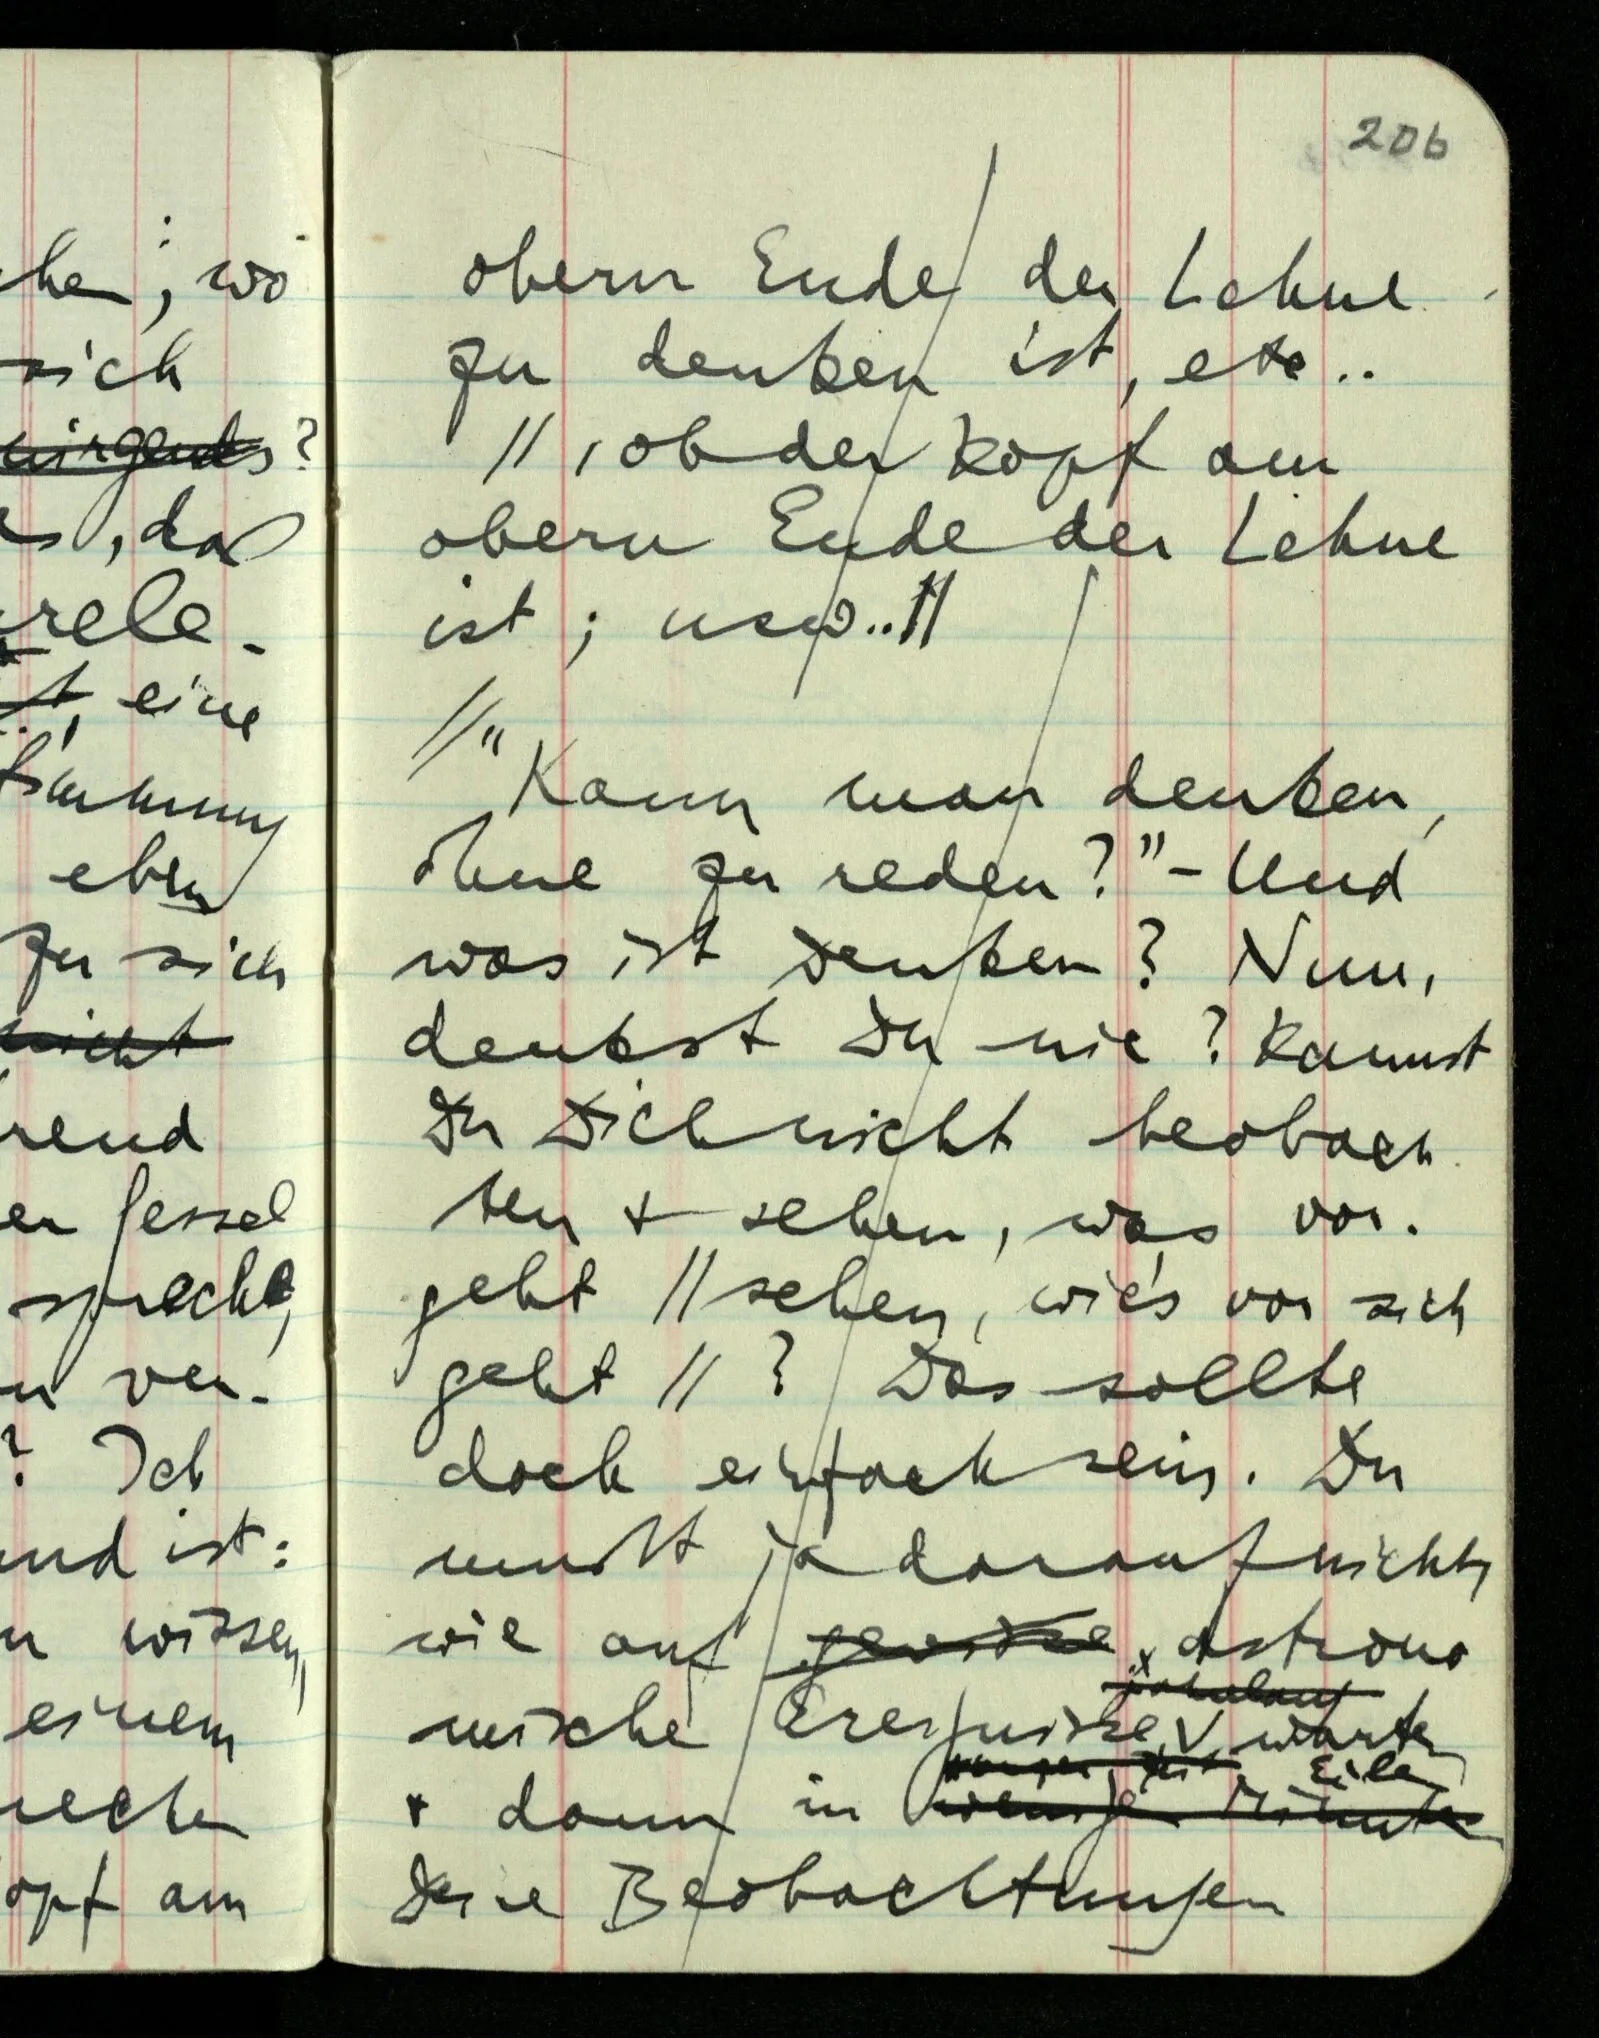 206
hen; wo
sich
nirgends?
, daß
rele-
eine
stimmung
eben
zu sich
nicht
rend
er Sessel
spricht,
n ver-
? Ich
und ist:
n wissen,
einem
rechen
opf am
obern Ende der Lehne
zu denken ist, etc..
//, ob der Kopf am
obern Ende der Lehne
ist; usw..//
//"Kann man denken,
ohne zu reden?" – Und
was ist Denken? Nun,
denkst Du nie? Kannst
Du Dich nicht beobach
ten + sehen, was vor-
geht // sehen, wie's vor sich
geht //? Das sollte
doch einfach sein. Du
mußt ja darauf nicht,
wie auf gewisse astrono
mische Ereignisse
jahrelang
warten
Eile
+ dann in wenige Minuten
Deine Beobachtungen